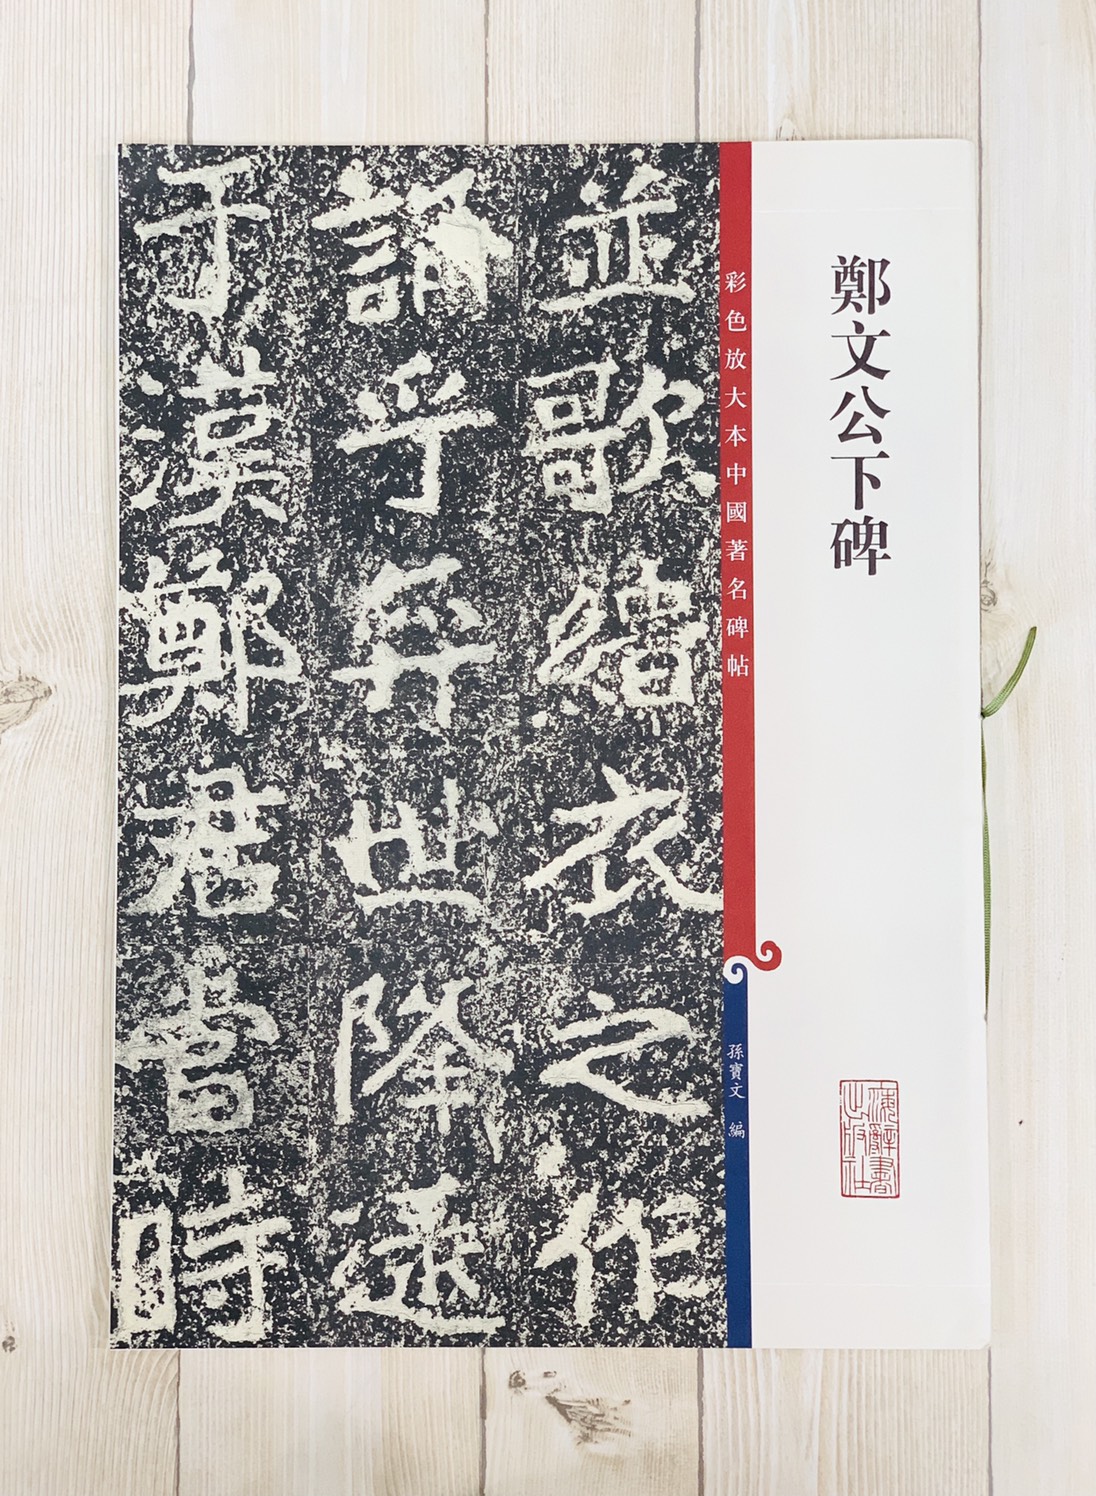 鄭文公下碑
彩色放大本中國著名碑帖
孫寶文 編
海辭書
出版社
並歌緇衣之作
誦乎奕世降逮
于漢鄭君當時